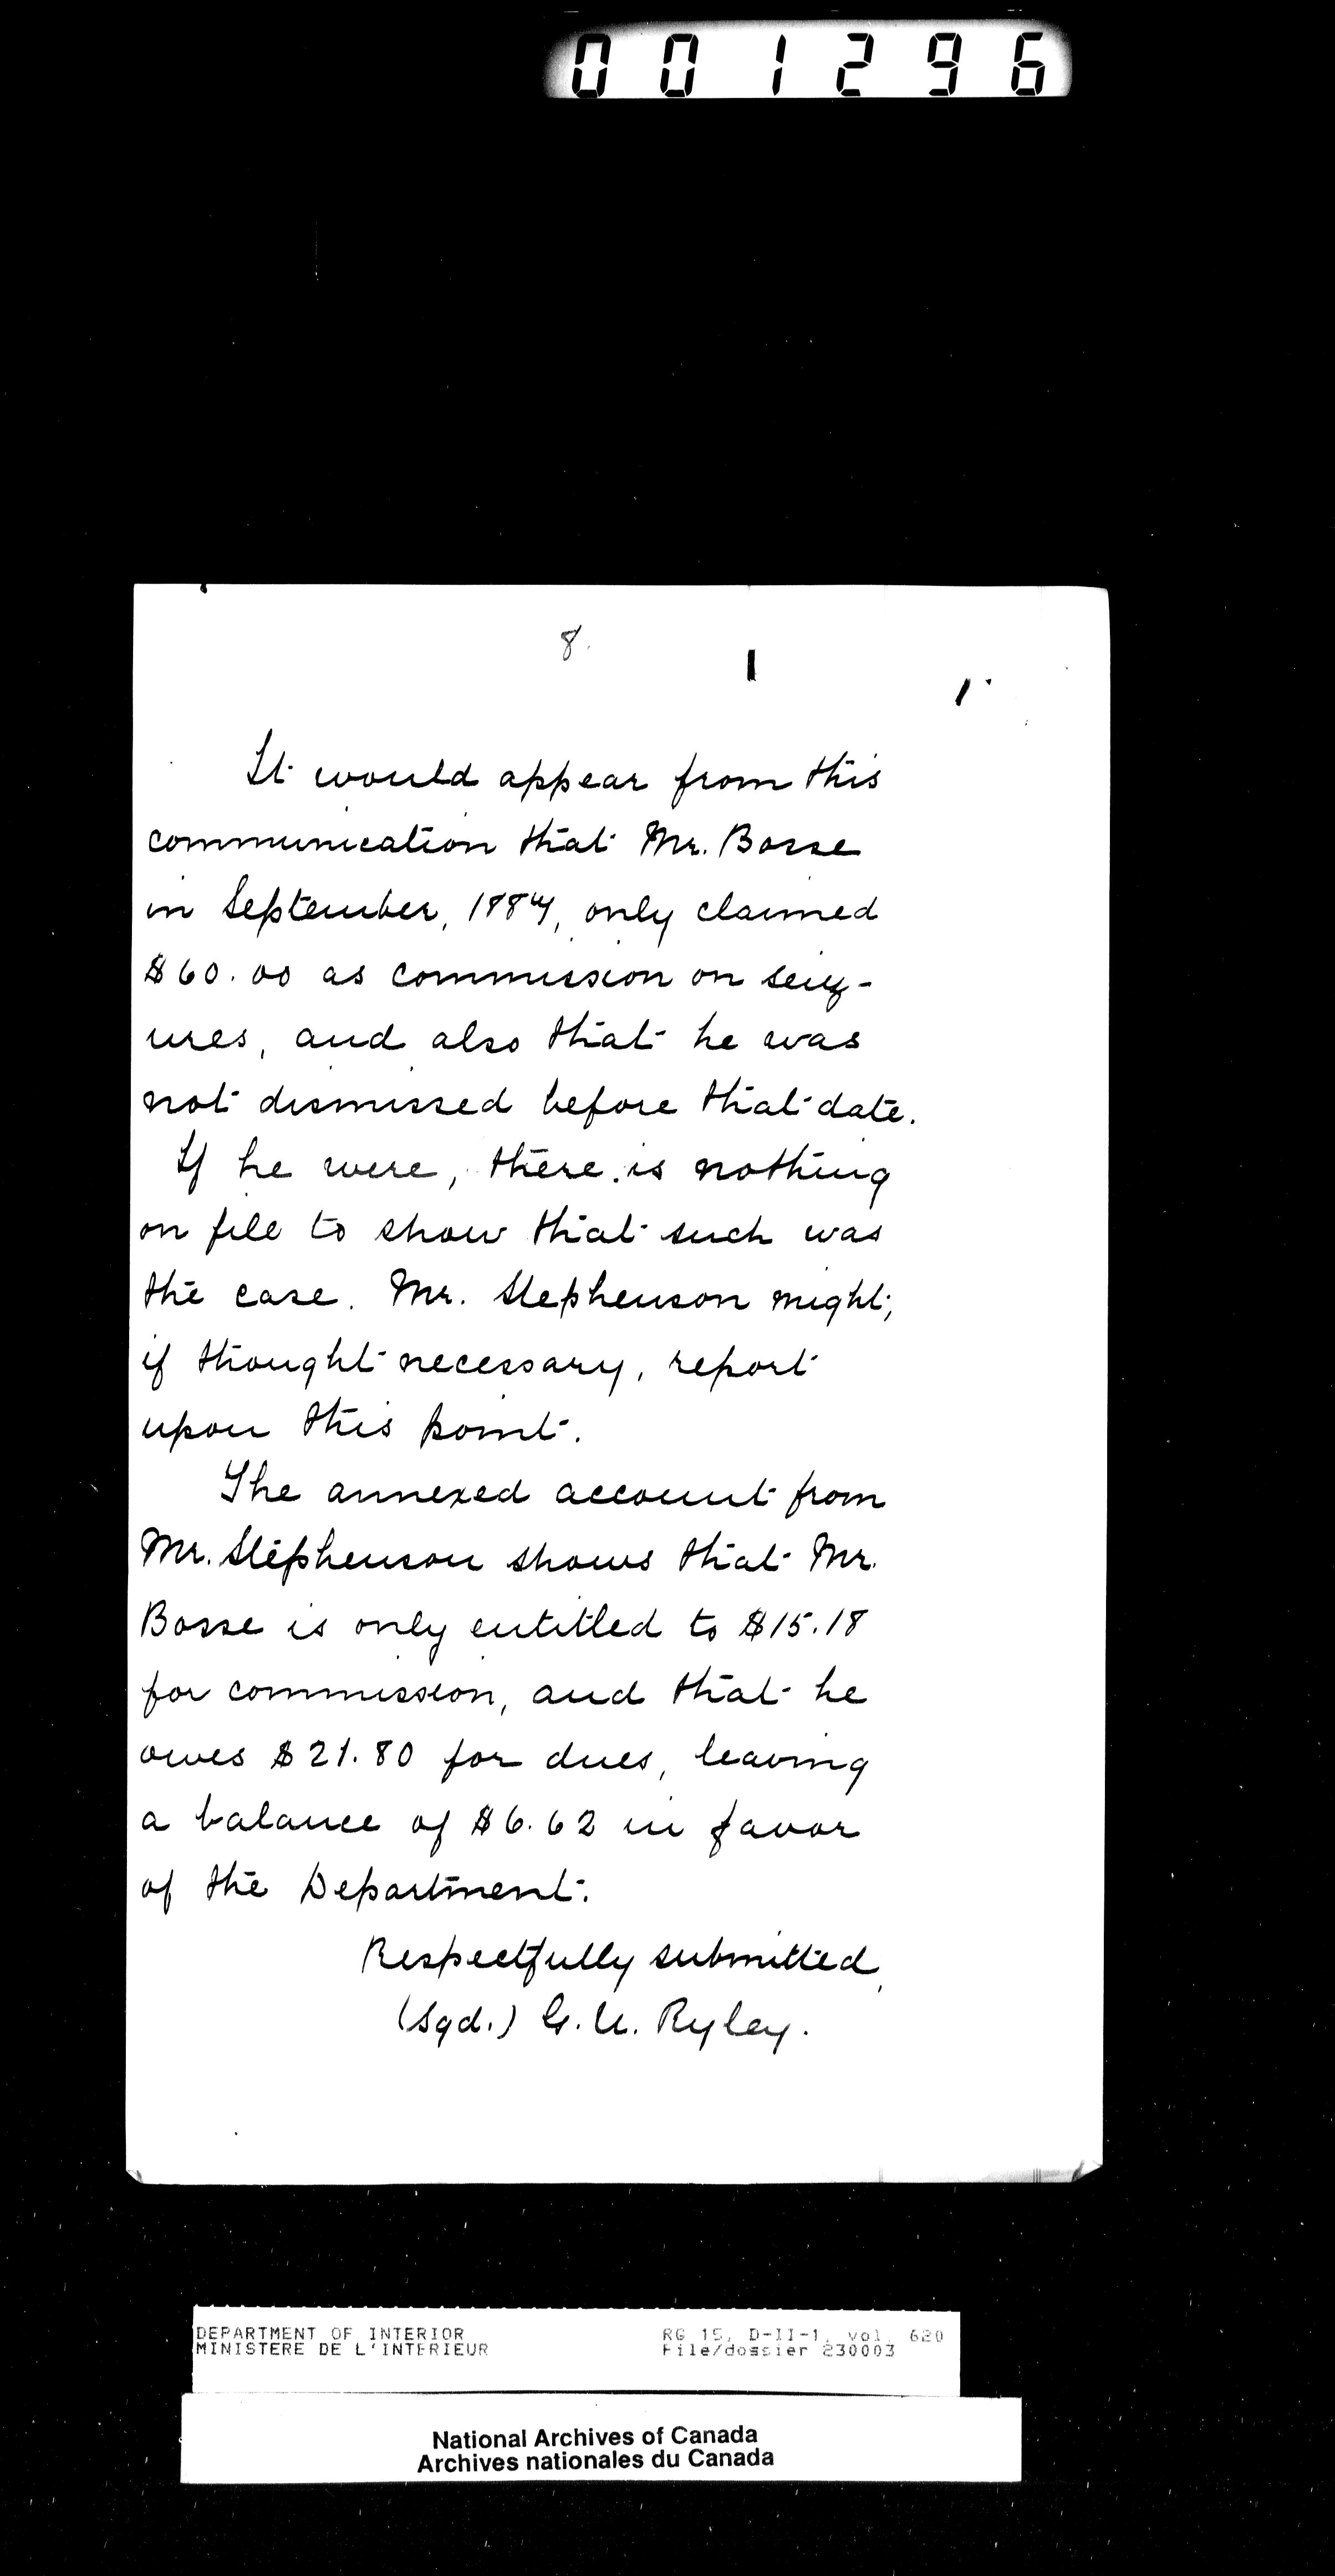 001296
8.
It would appear from this
communication that Mr. Bosse
in September, 1884, only claimed
$60.00 as commission on seiz-
ures, and also that he was
not dismissed before that date.
If he were, there is nothing
on file to show that such was
the case. Mr. Stephenson might,
if thought necessary, report
upon this point.
The annexed account from
Mr. Stephenson shows that Mr.
Bosse is only entitled to $15.18
for commission, and that he
owes $21.80 for dues, leaving
a balance of $6.62 in favor
of the Department.
Respectfully submitted,
(Sgd.) G. U. Ryley.
DEPARTMENT OF INTERIOR RG 15, D-II-1, vol. 620
MINISTERE DE L'INTERIEUR File/dossier 230003
National Archives of Canada
Archives nationales du Canada